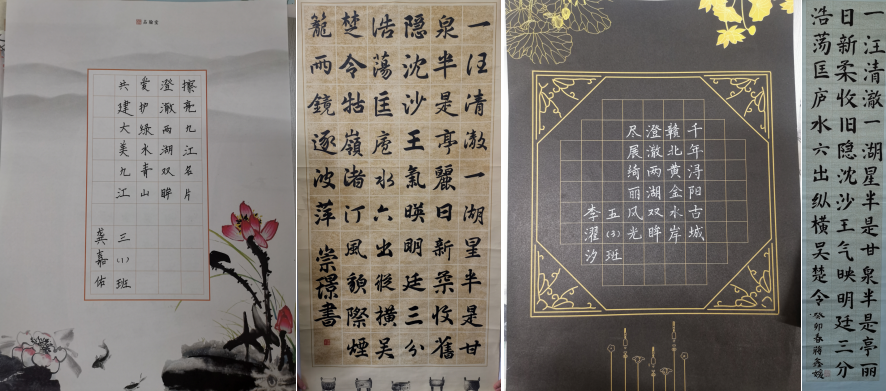 擦亮九江名片
澄澈两湖双眸
爱护绿水青山
共建大美九江
三(1)班
龚嘉佑
一汪清澈一湖星半是甘
泉半是亭麗日新柔收舊
隐沈沙王氣暎明廷三分
浩蕩匡廬水六出縱橫吴
楚令牯嶺渚汀風貌際煙
籠兩鏡逐波萍 崇璟書
千年浔阳古城
赣北黄金水岸
澄澈两湖双眸
尽展绮丽风光
五(3)班
李濯汐
一汪清澈一湖星半是甘泉半是亭丽
日新柔收旧隐沈沙王气映明廷三分
浩荡匡庐水六出纵横吴楚令 癸卯春蒋鑫媛